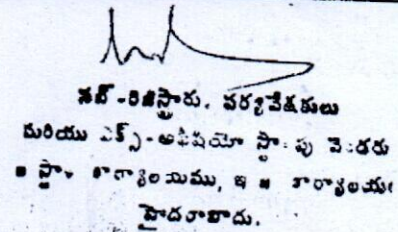 సబ్-రిజిస్ట్రారు. పర్యవేక్షకులు
మరియు ఎక్స్-అఫీషియో స్టాంపు వెండరు
కార్యాలయము,
హైదరాబాదు.